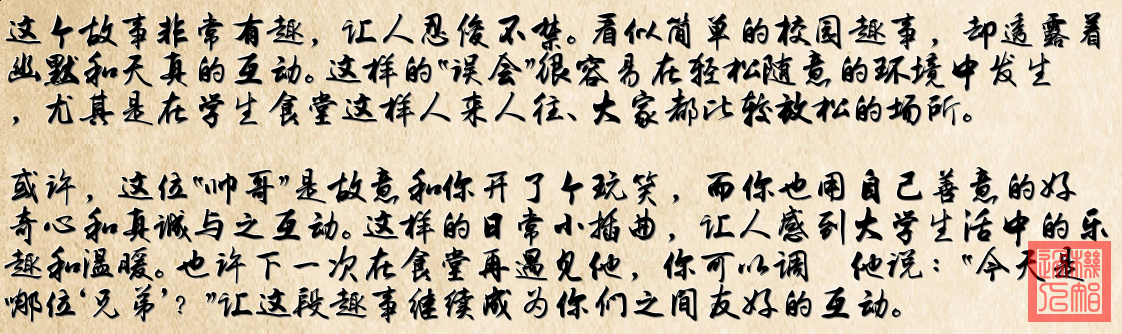 这个故事非常有趣，让人忍俊不禁。看似简单的校园趣事，却透露着
幽默和天真的互动。这样的“误会”很容易在轻松随意的环境中发生
，尤其是在学生食堂这样人来人往、大家都比较放松的场所。
或许，这位“帅哥”是故意和你开了个玩笑，而你也用自己善意的好
奇心和真诚与之互动。这样的日常小插曲，让人感到大学生活中的乐
趣和温暖。也许下一次在食堂再遇见他，你可以调 他说：“今天是
哪位‘兄弟’？”让这段趣事继续成为你们之间友好的互动。